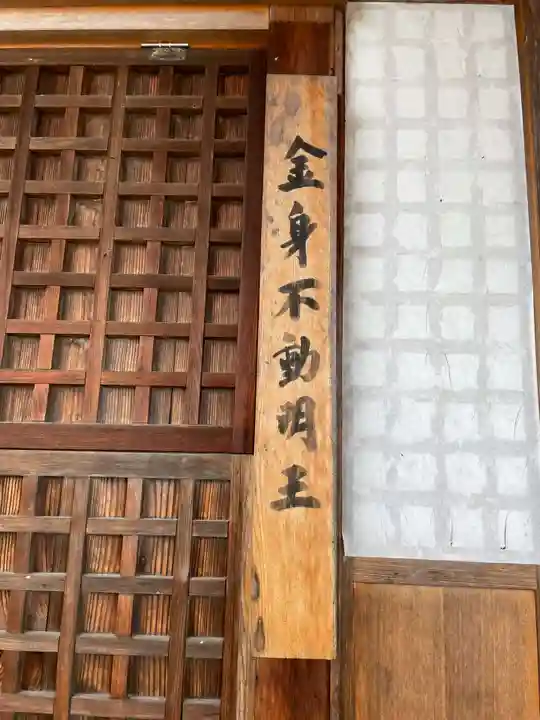 金身不動明王